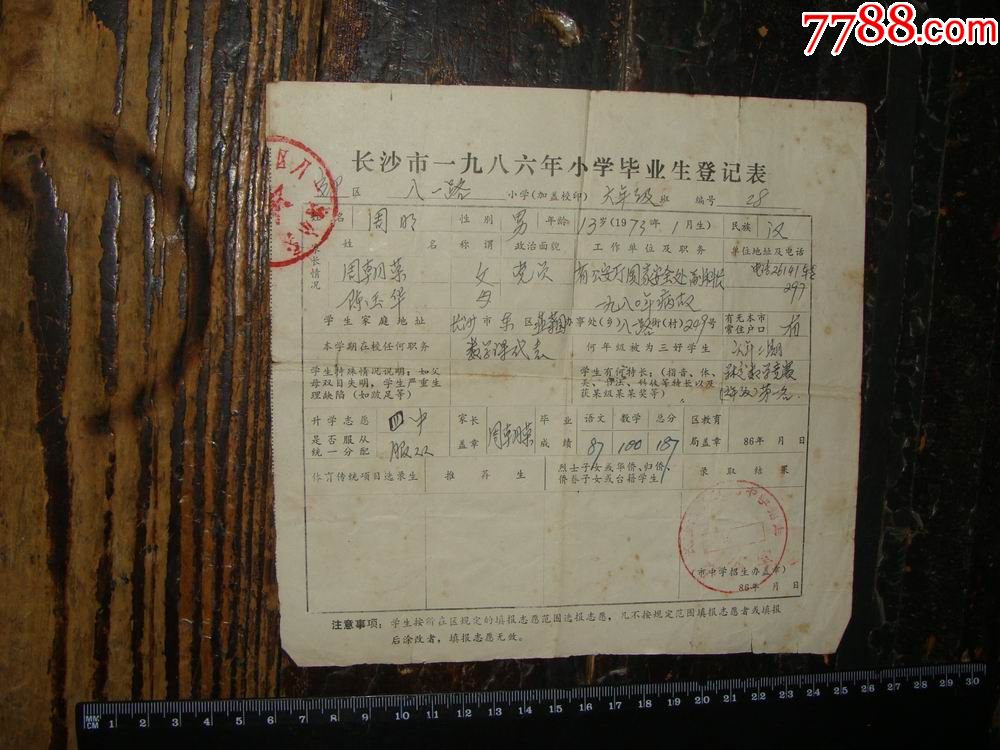 7788.com
长沙市一九八六年小学毕业生登记表
区 八一路 小学(加盖校印) 六年级 班 编号 28
名 周明 性别 男 年龄 13岁(1973年1月生) 民族 汉
长情况 姓名 称谓 政治面貌 工作单位及职务 单位地址及电话
周朝荣 父 党员 省公安厅国家安全处副科长 电话26141转
297
陈玉华 母 一九八〇年病故
学生家庭地址 长沙市东区 办事处(乡)八一路街(村)249号 有无本市常住户口 有
本学期在校任何职务 数学课代表 何年级被为三好学生
学生特殊情况说明:如父母双目失明,学生严重生理缺陷(如跛足等)
学生有何特长:(指音、体、美、书法、科技等特长以及获某级某某奖等) 第一名
升学志愿 四中 家长盖章 周朝荣 毕业成绩 语文 数学 总分 区教育局盖章
是否服从统一分配 服从 87 100 187 86年 月 日
体育传统项目选录生 推荐生 烈士子女或华侨、归侨、侨眷子女或台籍学生 录取结果
(市中学招生办盖章)
86年 月 日
注意事项:学生按所在区规定的填报志愿范围选报志愿,凡不按规定范围填报志愿者或填报
后涂改者,填报志愿无效。
MM
CM 1 2 3 4 5 6 7 8 9 10 11 12 13 14 15 16 17 18 19 20 21 22 23 24 25 26 27 28 29 30